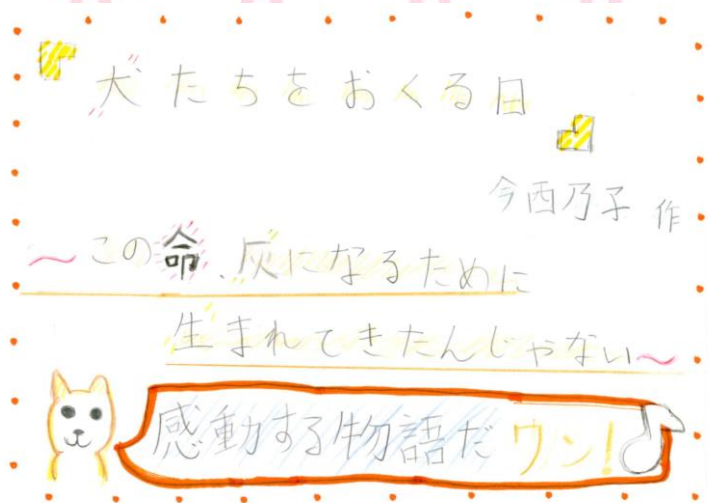 『犬たちをおくる日』
今西乃子 作
～この命、灰になるために
生まれてきたんじゃない～
感動する物語だワン!